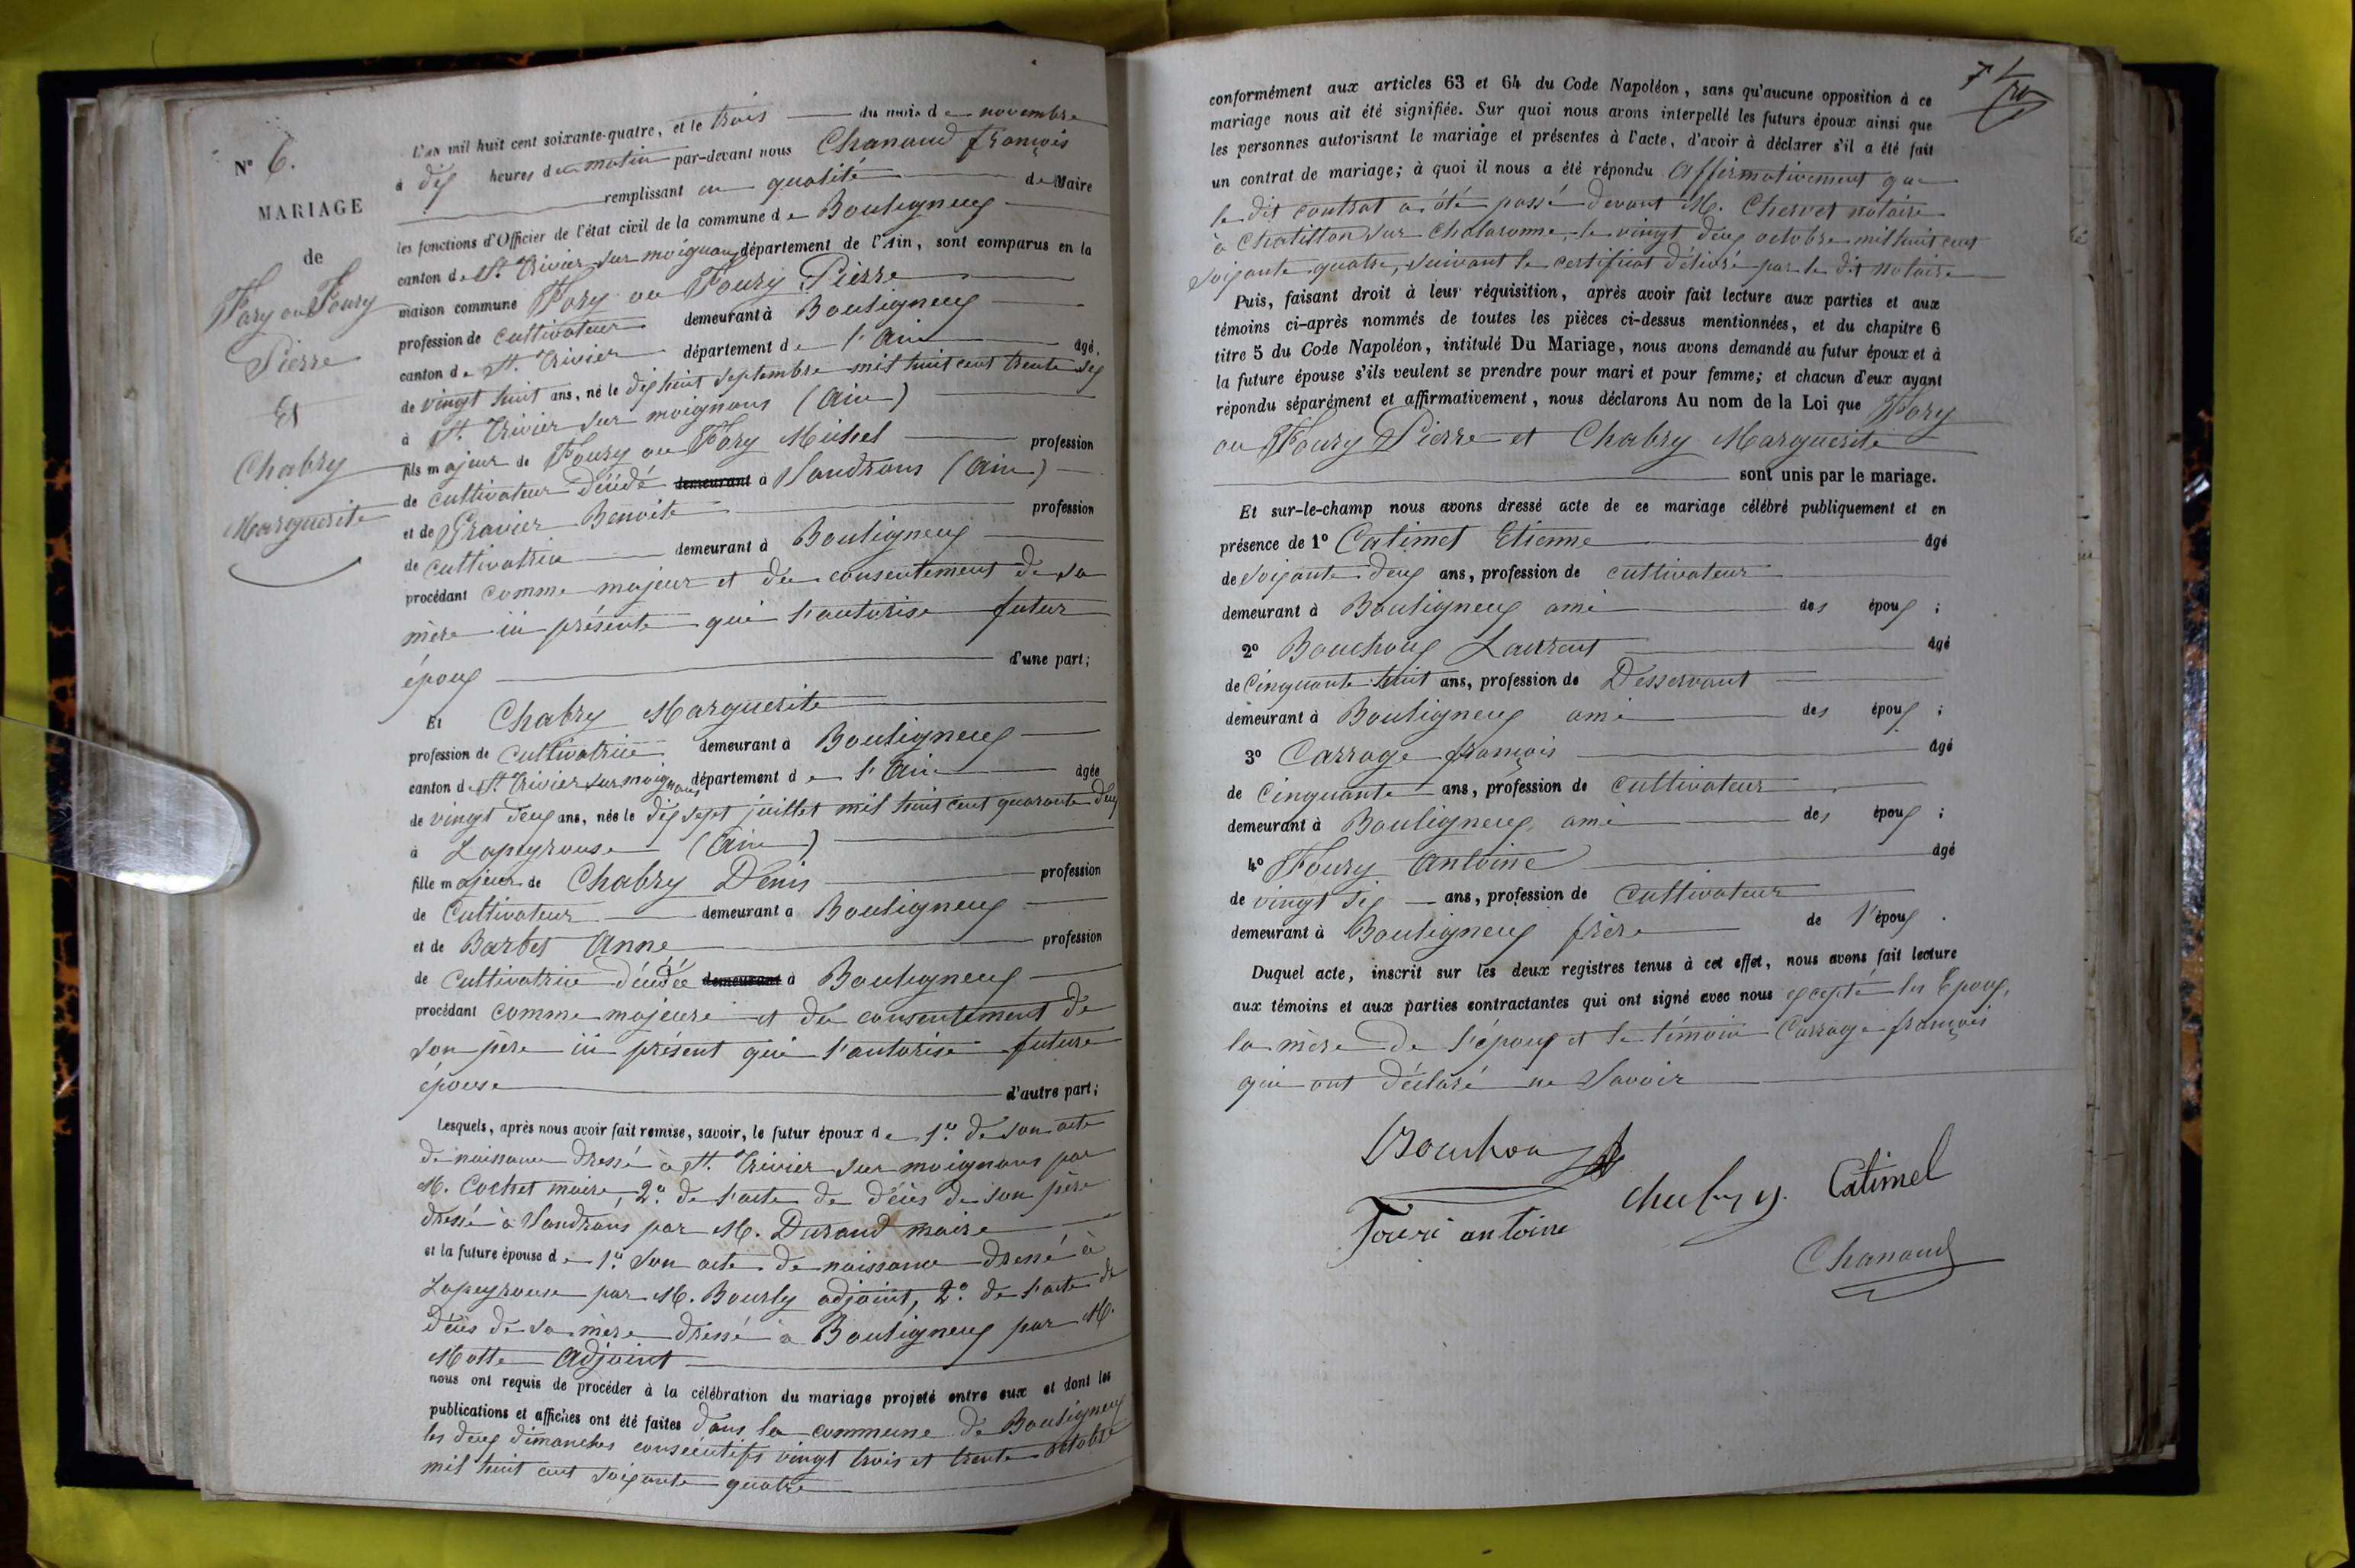 N° 6.
MARIAGE
de
Fory ou Foury
Pierre
Et
Chabry
Marguerite
L'an mil huit cent soixante-quatre, et le trois du mois de novembre
à dix heures du matin par-devant nous Chanaud françois
remplissant en qualité de Maire
les fonctions d'Officier de l'état civil de la commune de Bouligneux
canton de St. Trivier sur moignans département de l'Ain, sont comparus en la
maison commune Fory ou Foury Pierre
profession de cultivateur demeurant à Bouligneux
canton de St. Trivier département de l'Ain âgé,
de vingt huit ans, né le dix huit septembre mil huit cent trente six
à St. Trivier sur moignans (Ain)
fils majeur de Foury ou Fory Michel profession
de cultivateur décédé demeurant à Sandrans (Ain)
et de Gravier Benoite profession
de cultivatrice demeurant à Bouligneux
procédant comme majeur et du consentement de sa
mère ici présente qui l'autorise futur
époux d'une part;
Et Chabry Marguerite
profession de cultivatrice demeurant à Bouligneux
canton de St. Trivier sur moignans département de l'Ain âgée
de vingt deux ans, née le dix sept juillet mil huit cent quarante deux
à Lapeyrouse (Ain)
fille majeure de Chabry Denis profession
de Cultivateur demeurant à Bouligneux
et de Barbet Anne profession
de cultivatrice décédée demeurant à Bouligneux
procédant comme majeure et du consentement de
son père ici présent qui l'autorise future
épouse d'autre part;
Lesquels, après nous avoir fait remise, savoir, le futur époux de 1° de son acte
de naissance dressé à St. Trivier sur moignans par
M. Cochet maire, 2° de l'acte de décès de son père
dressé à Sandrans par M. Durand maire
et la future épouse de 1° son acte de naissance dressé à
Lapeyrouse par M. Bourly adjoint, 2° de l'acte de
décès de sa mère dressé à Bouligneux par M.
Motte Adjoint
nous ont requis de procéder à la célébration du mariage projeté entre eux et dont les
publications et affiches ont été faites dans la commune de Bouligneux
les deux dimanches consécutifs vingt trois et trente octobre
mil huit cent soixante quatre
conformément aux articles 63 et 64 du Code Napoléon, sans qu'aucune opposition à ce
mariage nous ait été signifiée. Sur quoi nous avons interpellé les futurs époux ainsi que
les personnes autorisant le mariage et présentes à l'acte, d'avoir à déclarer s'il a été fait
un contrat de mariage; à quoi il nous a été répondu Affirmativement que
le dit contrat a été passé devant M. Chervet notaire
à Chatillon sur Chalaronne, le vingt deux octobre mil huit cent
soixante quatre, suivant le certificat délivré par le dit notaire
Puis, faisant droit à leur réquisition, après avoir fait lecture aux parties et aux
témoins ci-après nommés de toutes les pièces ci-dessus mentionnées, et du chapitre 6
titre 5 du Code Napoléon, intitulé Du Mariage, nous avons demandé au futur époux et à
la future épouse s'ils veulent se prendre pour mari et pour femme; et chacun d'eux ayant
répondu séparément et affirmativement, nous déclarons Au nom de la Loi que Fory
ou Foury Pierre et Chabry Marguerite
sont unis par le mariage.
Et sur-le-champ nous avons dressé acte de ce mariage célébré publiquement et en
présence de 1° Catimel Etienne âgé
de soixante deux ans, profession de cultivateur
demeurant à Bouligneux ami des époux;
2° Bouchoux Laurent âgé
de Cinquante huit ans, profession de Desservant
demeurant à Bouligneux ami des époux;
3° Carrage françois âgé
de Cinquante ans, profession de cultivateur
demeurant à Bouligneux ami des époux;
4° Foury Antoine âgé
de vingt six ans, profession de cultivateur
demeurant à Bouligneux frère de l'époux.
Duquel acte, inscrit sur les deux registres tenus à cet effet, nous avons fait lecture
aux témoins et aux parties contractantes qui ont signé avec nous excepté les Epoux,
la mère de l'époux et le témoin Carrage françois
qui ont déclaré ne savoir
Bouchoux
chabry Catimel
Fouri antoine
Chanaud